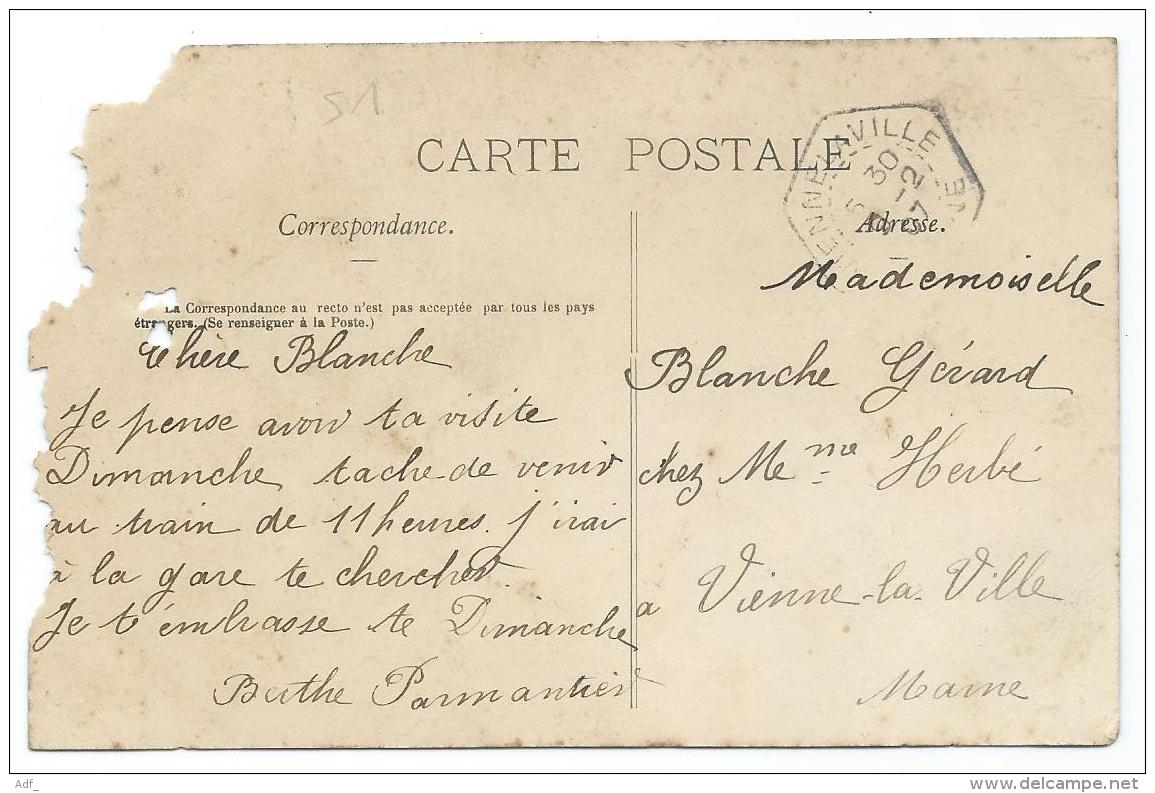 51
CARTE POSTALE
Correspondance.
La Correspondance au recto n'est pas acceptée par tous les pays
étrangers. (Se renseigner à la Poste.)
Chère Blanche
Je pense avoir ta visite
Dimanche, tache de venir
au train de 11 heures. j'irai
à la gare te chercher.
Je t'embrasse te Dimanche
Berthe Parmantier
ENNE-LA-VILLE
30
12
07
NE
Adresse.
Mademoiselle
Blanche Gérard
chez Mme Herbé
a Vienne-la-Ville
Marne
Adf_
delcampe.net